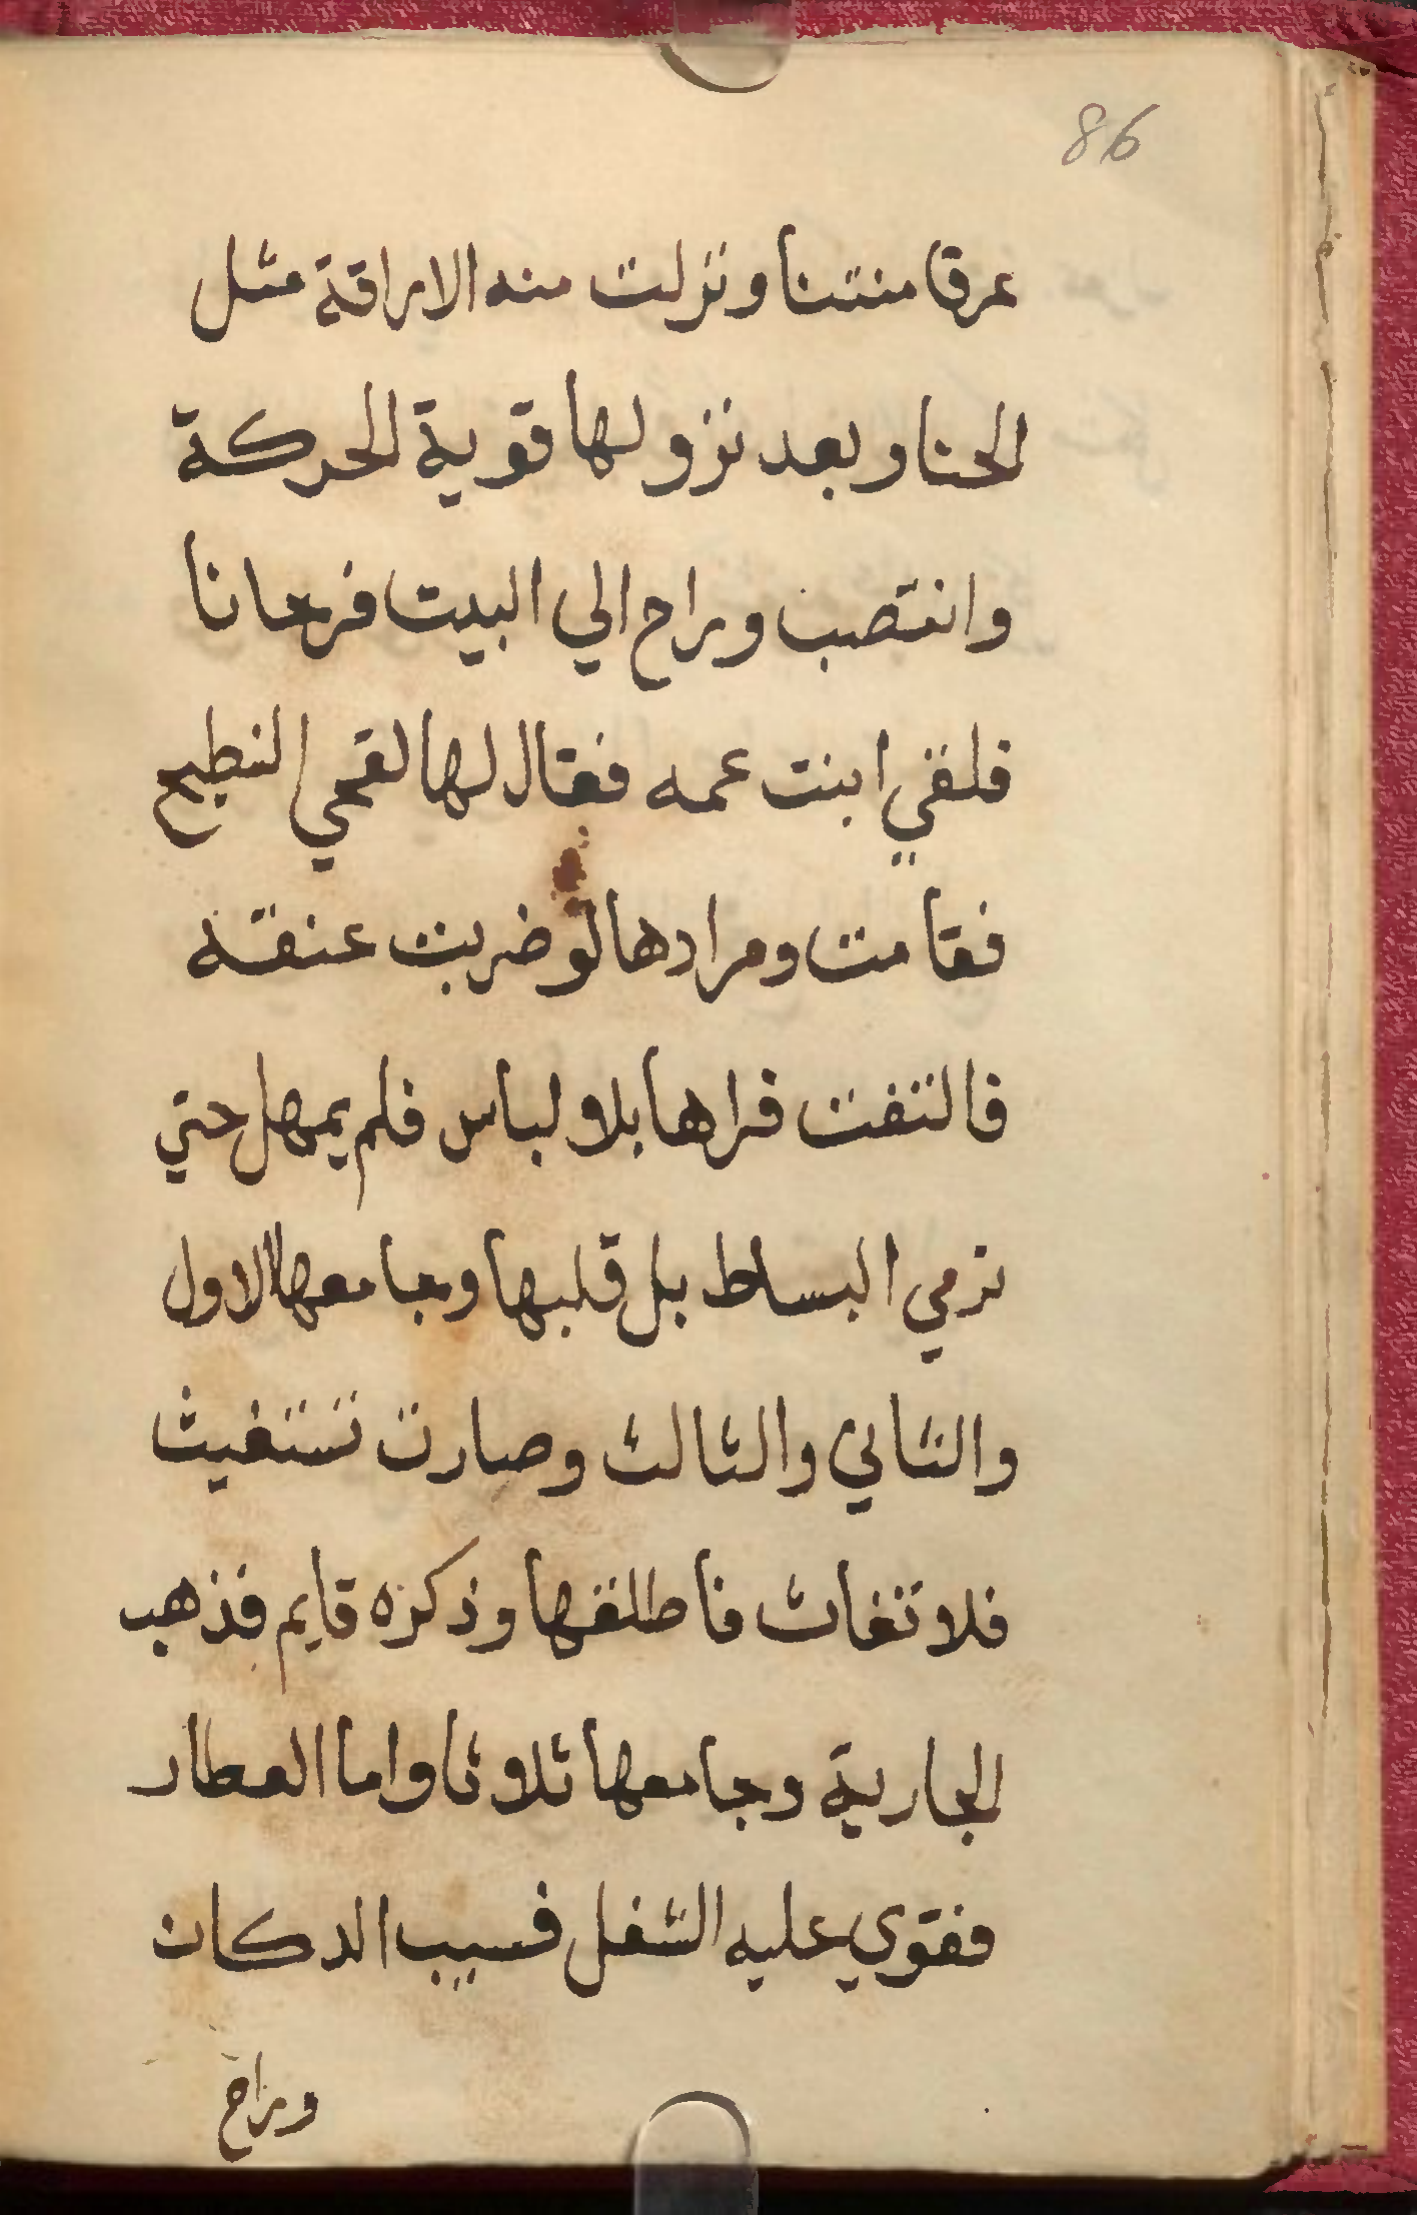 86
عرقا منتنا ونزلت منه الاراقة مثل
الحنا وبعد نزولها قوية الحركة
وانتصب وراح الي البيت فرحانا
فلقي ابنت عمه فقال لها لقمي النطيح
فقامت ومرادها لو ضربت عنقه
فالتفت فراها بلا لباس فلم يمهل حتي
ترمي البساط بل قلبها وجامعها الاول
والثاني والثالث وصارت تستغيث
فلا تغاث فاطلقها وذكره قايم فذهب
الجارية وجامعها ثلاوثا واما العطار
فقوي عليه الشغل فسيب الدكان
وراح